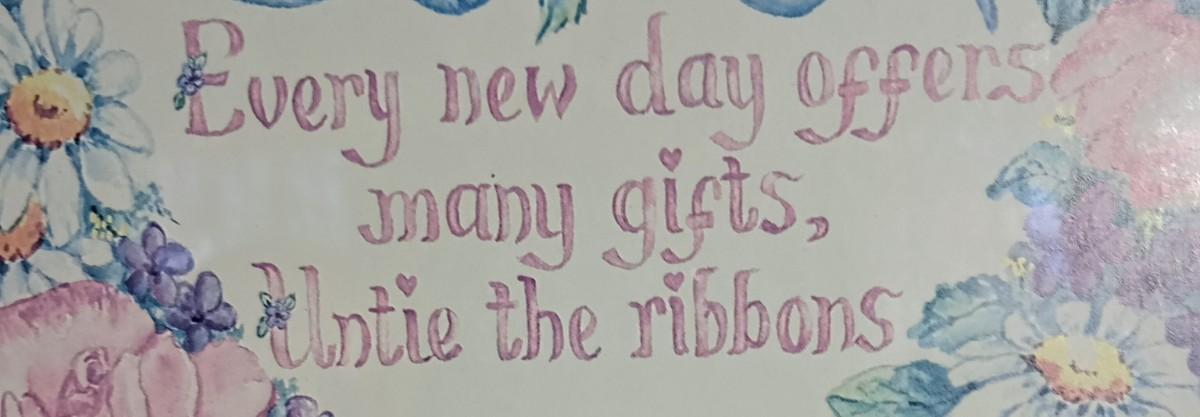 Every new day offers
many gifts,
Untie the ribbons